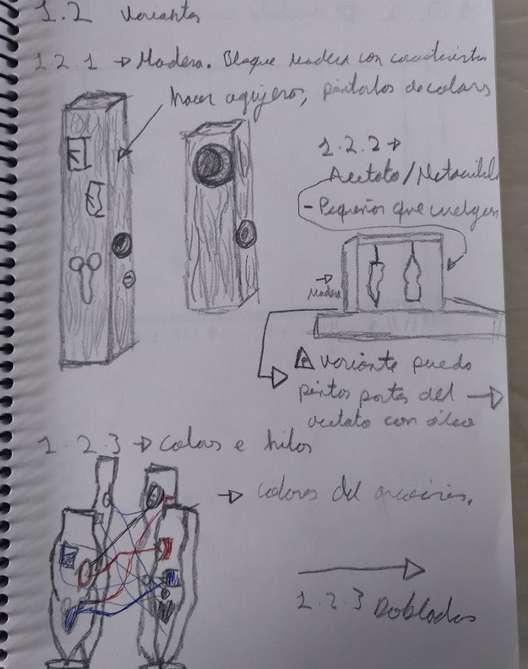 1.2 Variantes
1.2.1 → Madera. Bloque madera con
hacer agujeros, pintarlos de colores
1.2.2 →
Acetato/
- Pequeños que cuelguen
Madera
variante puedo
pintar partes del →
acetato con óleo
1.2.3 → Colores e hilos
→ colores del arcoiris.
1.2.3 Doblados